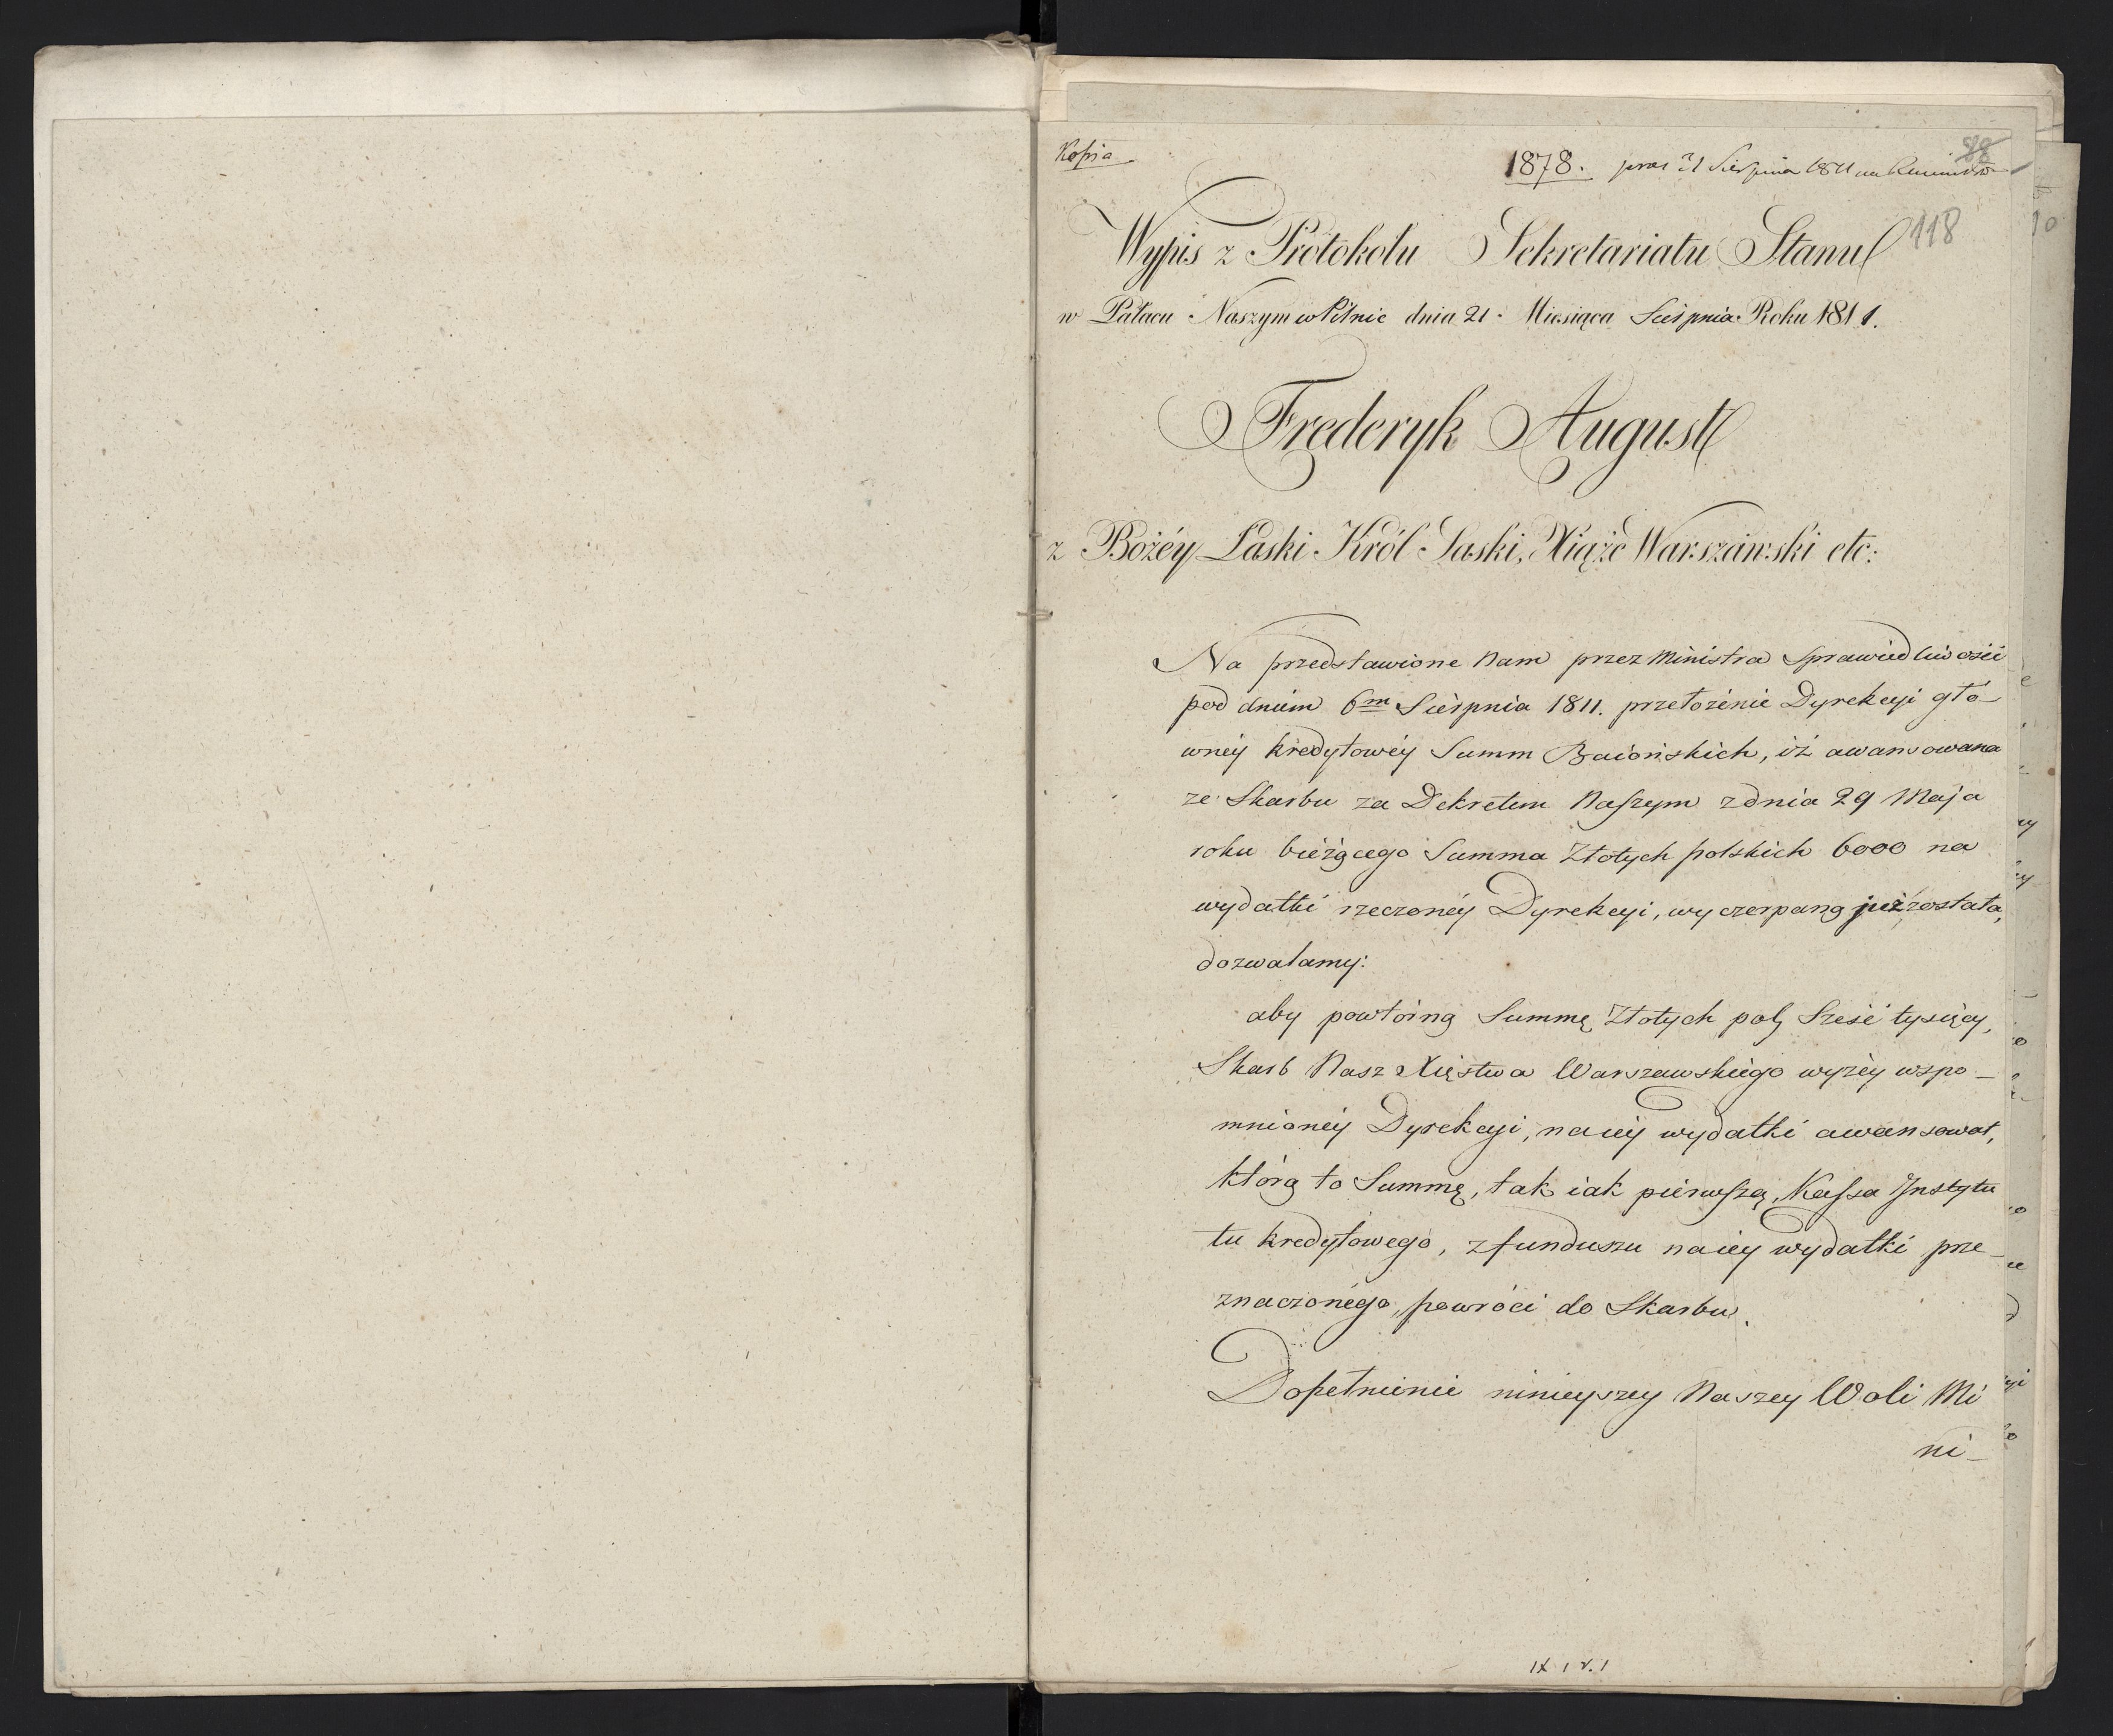 Kopia
1878. prae 31 Sierpnia 1811
88
118
Wypis z Protokołu Sekretariatu Stanu
w Pałacu Naszym w Pilnic dnia 21. Miesiąca Sierpnia Roku 1811.
Frederyk August
z Bożéy Łaski Król Saski, Xiąże Warszawski etc:
Na przedstawione Nam przez Ministra Sprawiedliwości
pod dniem 6m Sierpnia 1811. przełożenie Dyrekcyi głó-
wnéy kredytowéy Summ Baiońskich, iż awansowana
ze Skarbu za Dekretem Naszym z dnia 29 Maja
roku bieżącego Summa Złotych polskich 6000 na
wydatki rzeczonéy Dyrekcyi, wyczerpaną już została,
dozwalamy:
aby powtórną Summę Złotych pols Sześć tysięcy,
Skarb Nasz Xięstwa Warszawskiego wyżéy wspo-
mnionéy Dyrekcyi, na iéy wydatki awansował,
którą to Summę, tak iak pierwszą, Kassa Instytu
tu kredytowego, z funduszu na iey wydatki prze-
znaczonégo, powróci do Skarbu.
Dopełnienie ninieyszey Naszey Woli Mi
ni-